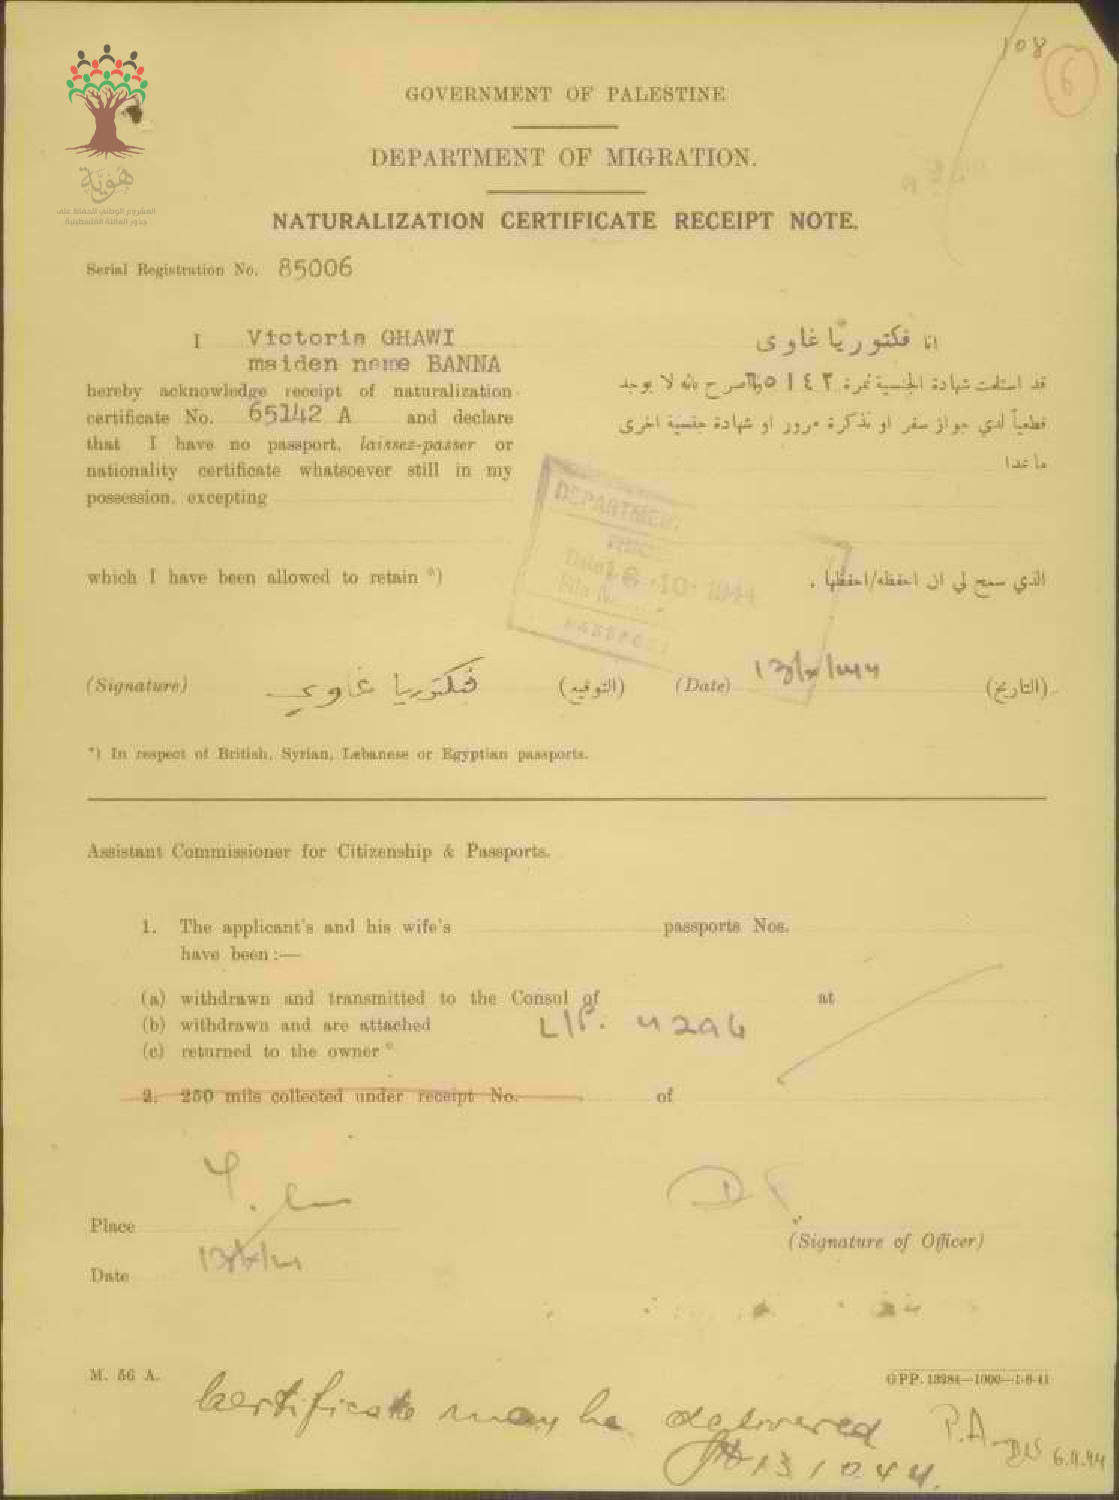 108
6
هوية
المشروع الوطني للحفاظ على
جذور العائلة الفلسطينية
GOVERNMENT OF PALESTINE
DEPARTMENT OF MIGRATION.
NATURALIZATION CERTIFICATE RECEIPT NOTE.
Serial Registration No. 85006
I Victoria GHAWI
maiden name BANNA
hereby acknowledge receipt of naturalization
certificate No. 65142 A and declare
that I have no passport, laissez-passer or
nationality certificate whatsoever still in my
possession, excepting
which I have been allowed to retain *)
انا فكتوريا غاوى
قد استلمت شهادة الجنسية نمرة ٦٥١٤٢ واصرح بانه لا يوجد
قطعياً لدي جواز سفر او تذكرة مرور او شهادة جنسية اخرى
ما عدا
الذي سمح لي ان احفظه/احفظها .
DEPARTMENT
Date 16-10-1944
File N
PASSPORT
(Signature) فكتوريا غاوي (التوقيع) (Date) 13/x/44 (التاريخ)
*) In respect of British, Syrian, Lebanese or Egyptian passports.
Assistant Commissioner for Citizenship & Passports.
1. The applicant's and his wife's passports Nos.
have been :—
(a) withdrawn and transmitted to the Consul of at
(b) withdrawn and are attached L/P. 4296
(c) returned to the owner *
2. 250 mils collected under receipt No. of
Place
(Signature of Officer)
Date 13/x/44
M. 56 A.
GPP. 13984—1000—1-8-41
Certificate may be delivered
13 10 44.
P.A.
6.11.44